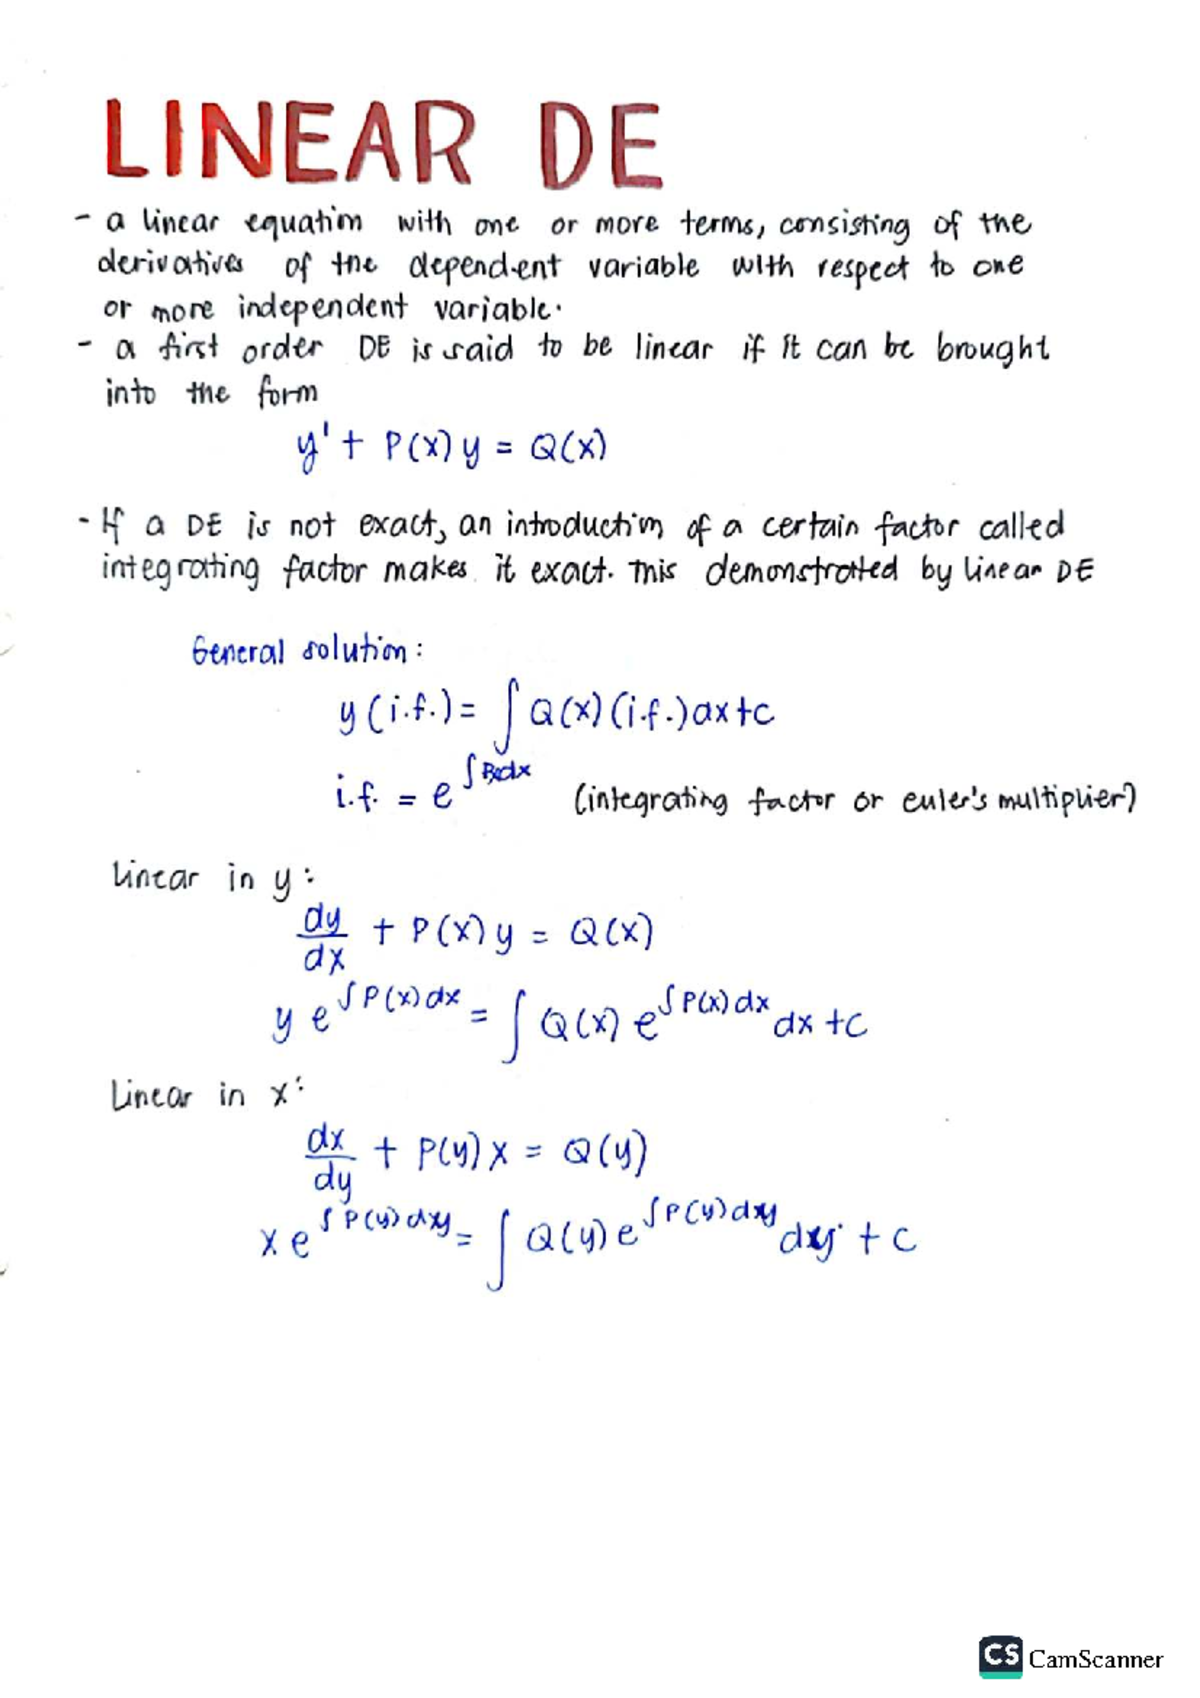 LINEAR DE
- a linear equation with one or more terms, consisting of the
derivatives of the dependent variable with respect to one
or more independent variable.
- a first order DE is said to be linear if it can be brought
into the form
y' + P(x) y = Q(x)
- If a DE is not exact, an introduction of a certain factor called
integrating factor makes it exact. This demonstrated by linear DE
General solution:
y (i.f.) = ∫ Q(x) (i.f.) dx + c
i.f. = e^∫P(x)dx (integrating factor or euler's multiplier)
Linear in y:
dy/dx + P(x) y = Q(x)
y e^∫P(x)dx = ∫ Q(x) e^∫P(x)dx dx + c
Linear in x:
dx/dy + P(y) x = Q(y)
x e^∫P(y)dy = ∫ Q(y) e^∫P(y)dy dy + c
CS CamScanner